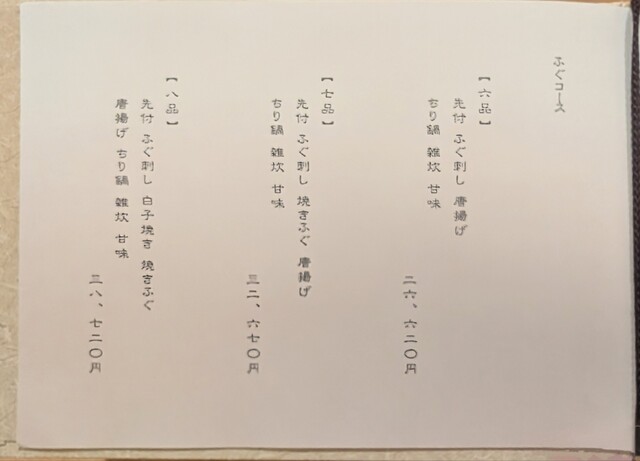 ふぐコース
【六品】
先付 ふぐ刺し 唐揚げ
ちり鍋 雑炊 甘味
二六、六二〇円
【七品】
先付 ふぐ刺し 焼きふぐ 唐揚げ
ちり鍋 雑炊 甘味
三二、六七〇円
【八品】
先付 ふぐ刺し 白子焼き 焼きふぐ
唐揚げ ちり鍋 雑炊 甘味
三八、七二〇円